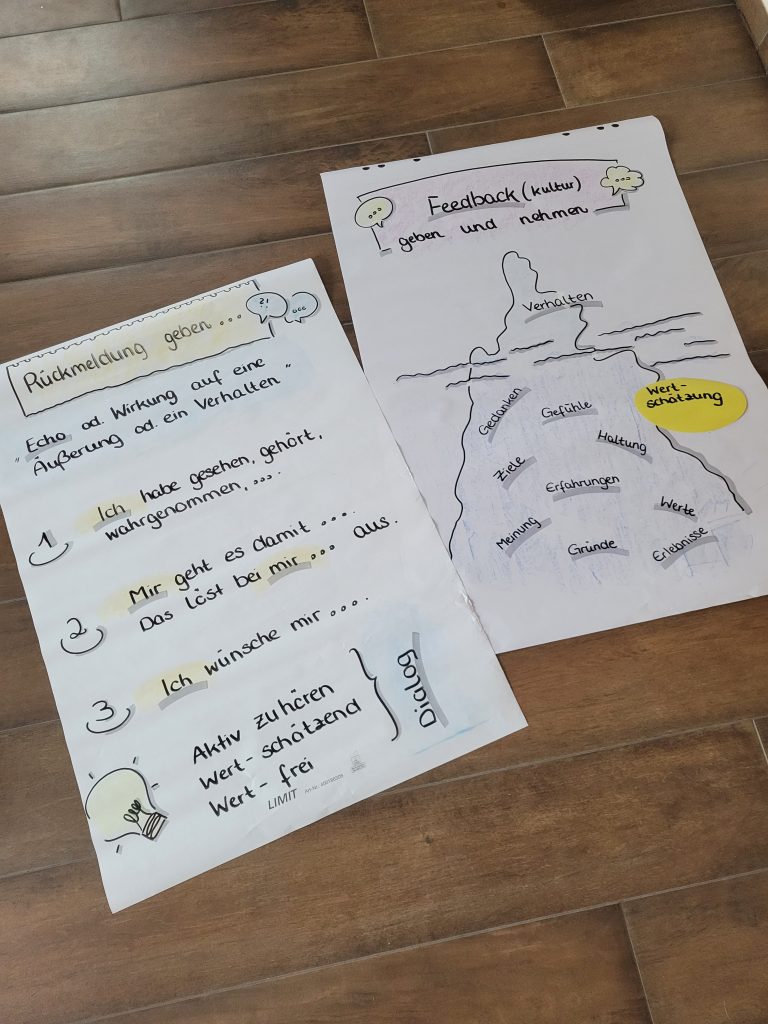 Rückmeldung geben...
?!
...
"Echo od. Wirkung auf eine
Äußerung od. ein Verhalten"
1 Ich habe gesehen, gehört,
wahrgenommen,....
2 Mir geht es damit ....
Das löst bei mir ... aus.
3 Ich wünsche mir ....
Aktiv zuhören
Wert-schätzend
Wert-frei
Dialog
LIMIT
...
Feedback (kultur)
geben und nehmen
...
Verhalten
Wert-
schätzung
Gedanken
Gefühle
Haltung
Ziele
Erfahrungen
Werte
Meinung
Gründe
Erlebnisse